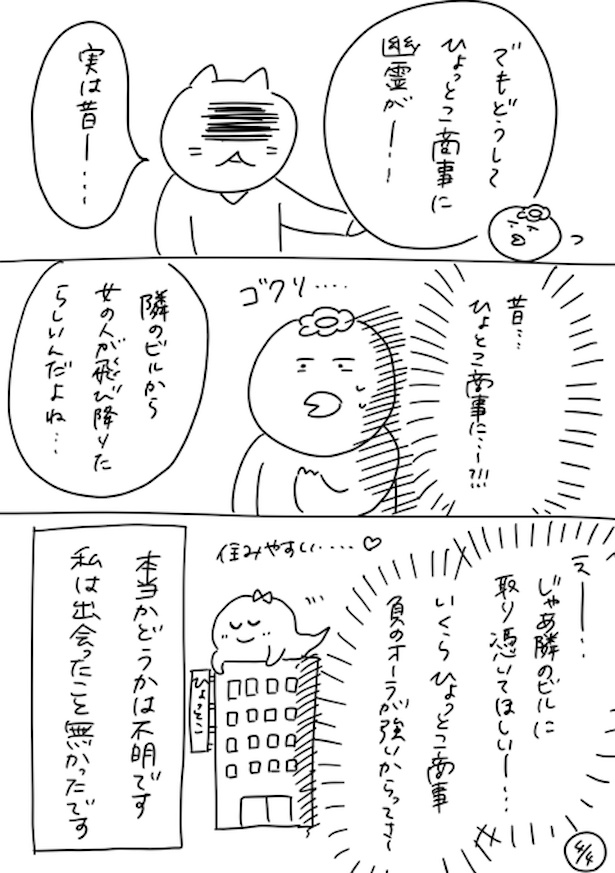 でもどうして
ひょっとこ商事に
幽霊がー…
実は昔ー…
昔…
ひょっとこ商事に…~?!!
ゴクリ….
隣のビルから
女の人が飛び降りた
らしいんだよね…
えー…
じゃあ隣のビルに
取り憑いてほしいー…
いくらひょっとこ商事
負のオーラが強いからってさ~
住みやすい….♡
ひょっとこ
本当かどうかは不明です
私は出会ったこと無かったです
4/4